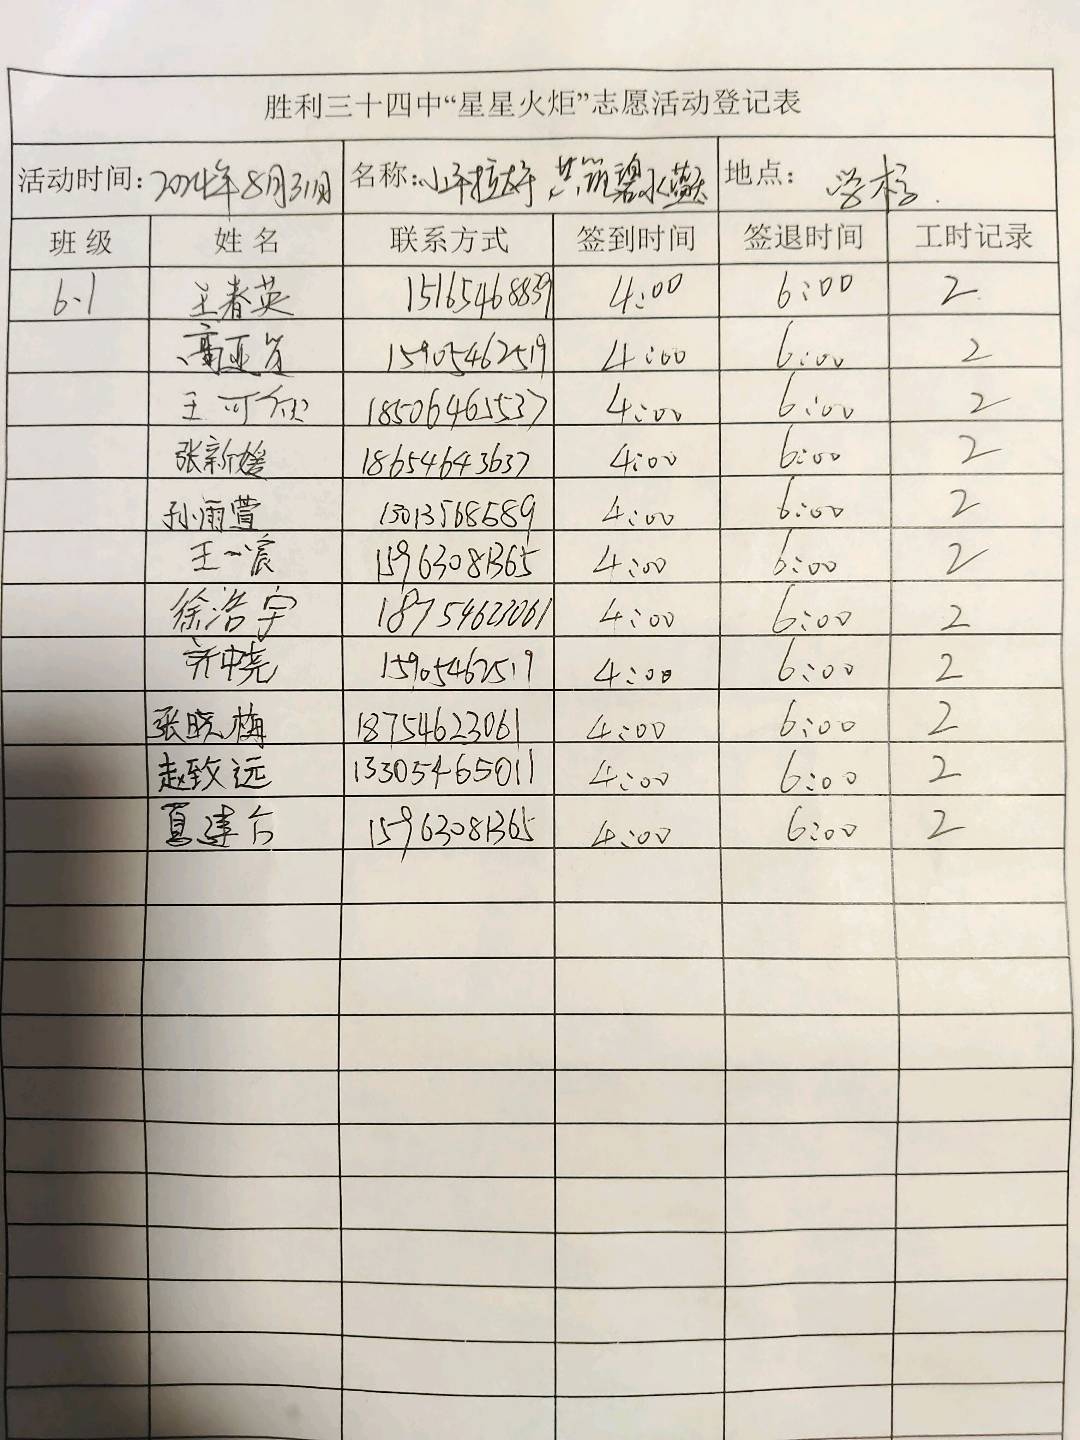 胜利三十四中“星星火炬”志愿活动登记表
活动时间：2024年8月31日 名称：小手拉大手 共筑碧水蓝天 地点：学校.
班级 姓名 联系方式 签到时间 签退时间 工时记录
6.1 王春英 15165468839 4:00 6:00 2
高亚 15905462519 4:00 6:00 2
王可欣 18506465537 4:00 6:00 2
张新媛 18654643637 4:00 6:00 2
孙雨萱 13013568689 4:00 6:00 2
王一宸 15963081365 4:00 6:00 2
徐浩宇 18754623061 4:00 6:00 2
齐中尧 15905462519 4:00 6:00 2
张晓梅 18754623061 4:00 6:00 2
赵致远 13305465011 4:00 6:00 2
夏建台 15963081365 4:00 6:00 2